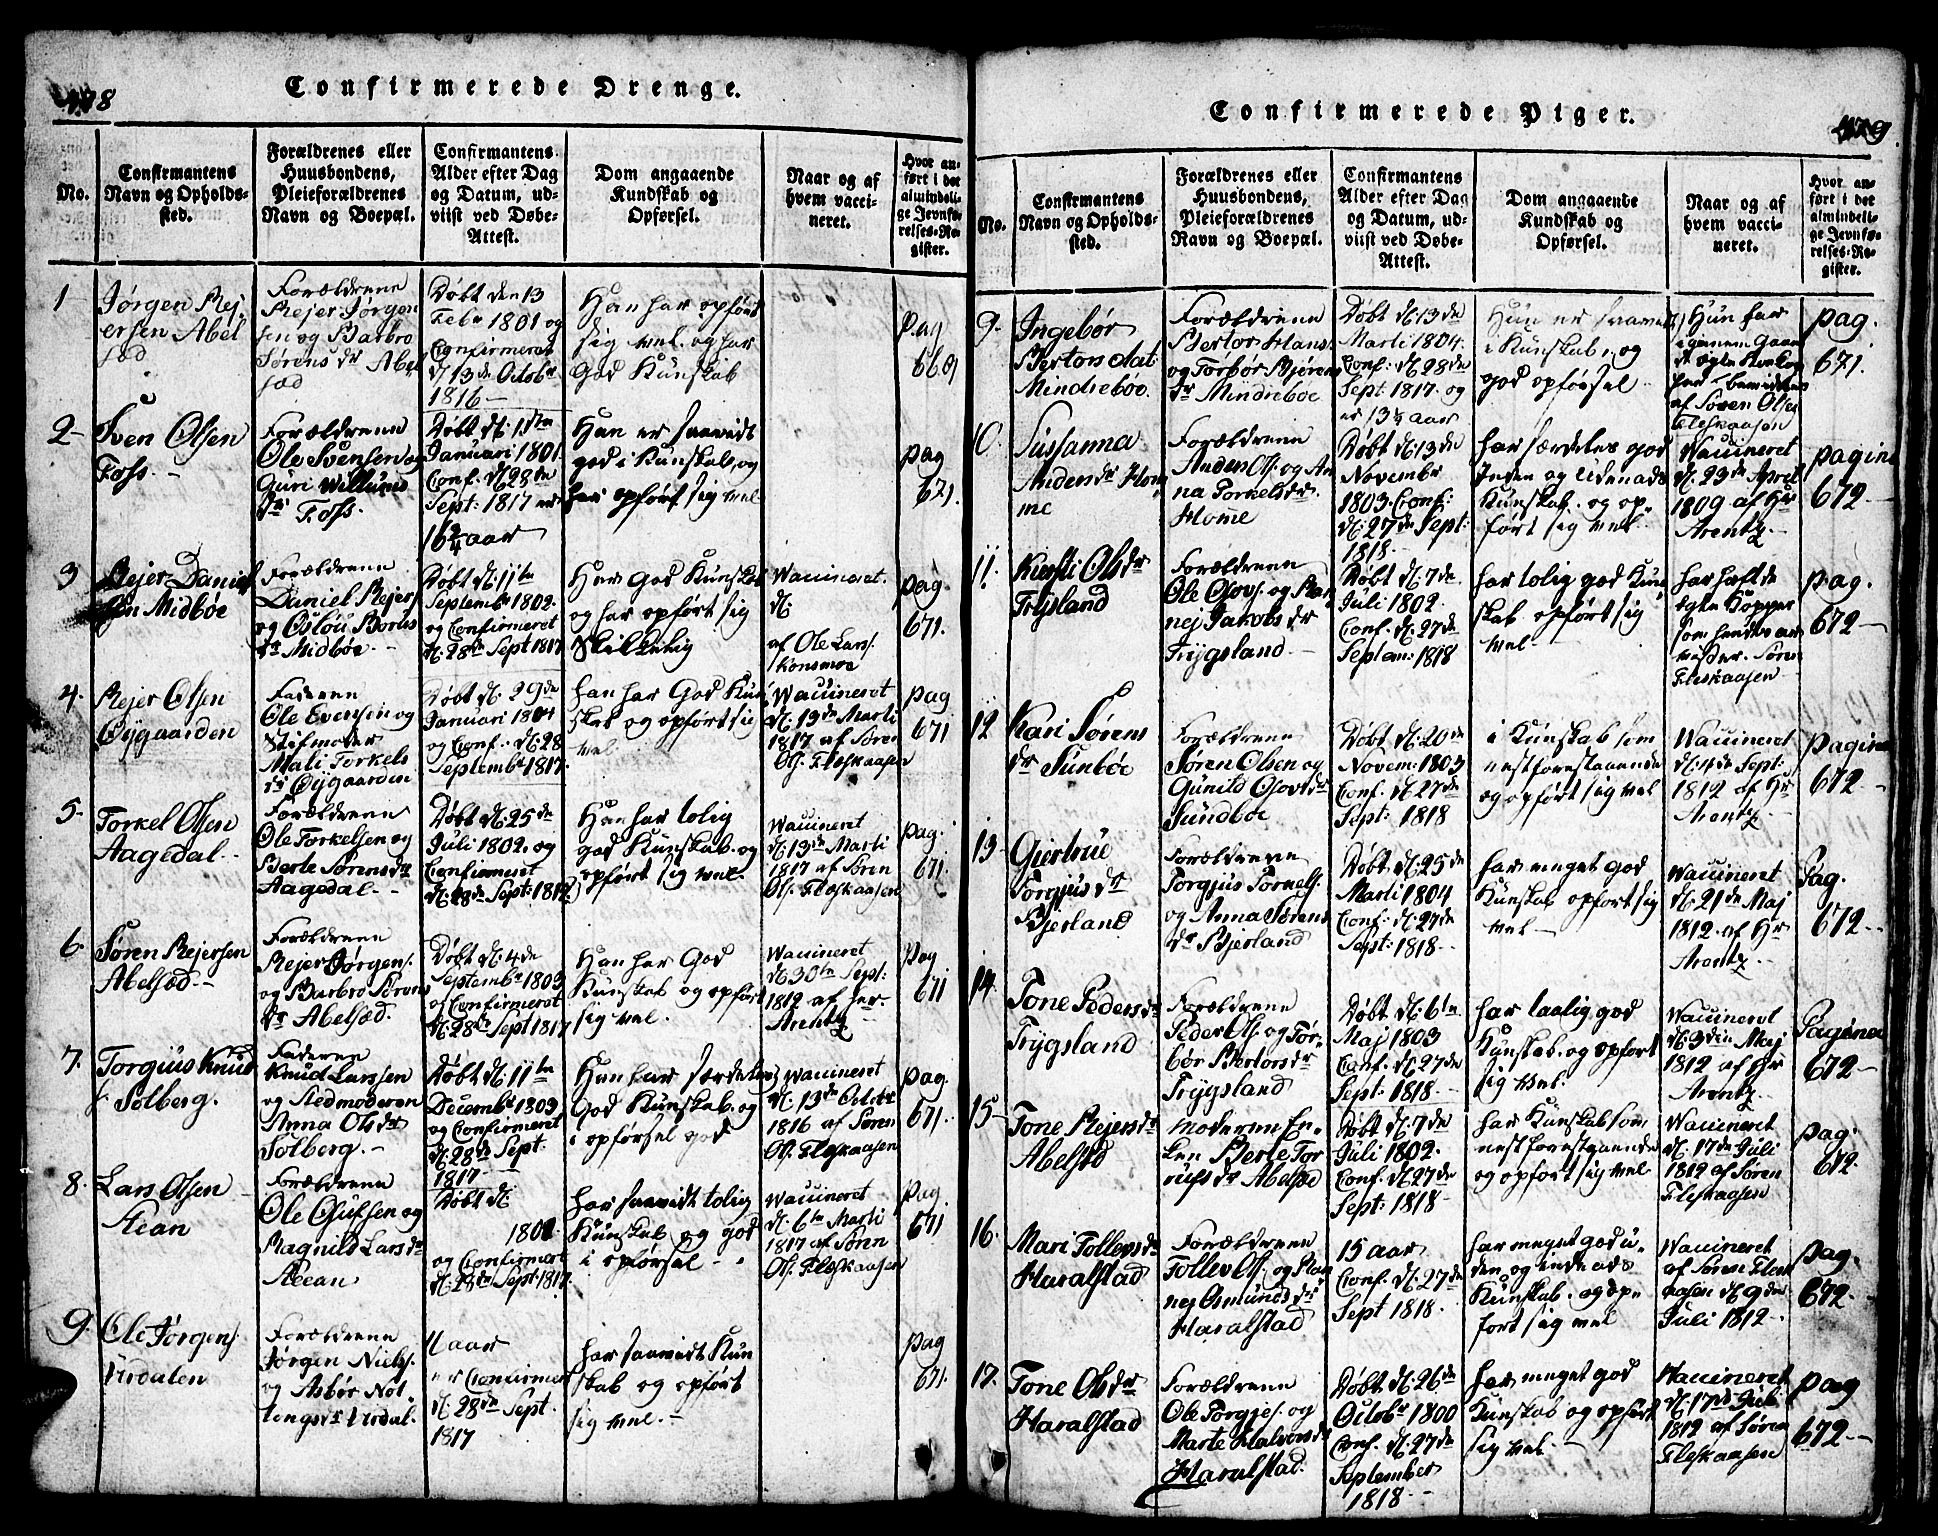 478
Confirmerede Drenge.
No.
Confirmantens
Navn og Opholds-
sted.
Forældrenes eller
Huusbondens,
Pleieforældrenes
Navn og Boepæl.
Confirmantens
Alder efter Dag
og Datum, ud-
viist ved Døbe-
Attest.
Dom angaaende
Kundskab og
Opførsel.
Naar og af
hvem vacci-
neret.
Hvor an-
ført i det
almindeli-
ge Jevnfø-
relses-Re-
gister.
1
Jørgen Rej
ersen Abel
sæd
Forældrene
Rejer Jørgen
sen og Barbro
Sørens dr Abel
sæd
Døbt den 13
Febr 1801 og
Confirmeret
d. 13de Octobr
1816
Han har opført
sig vel. og har
God Kunskab
Pag
669
2
Sven Olsen
Foss.
Forældrene
Ole Svensen og
Guri Willums
dr Foss.
Døbt d. 11te
Januari 1801.
Conf. d. 28de
Sept: 1817 er
16 3/4 aar
Han er saavidt
god i Kunskab, og
har opført sig vel
pag
671.
3
Rejer Daniel
sen Midbøe
Forældrene
Daniel Rejers
og Oslou Børus
dr Midbøe.
Døbt d. 11te
Septembr 1802.
og Confirmeret
d. 28de Sept 1817
Har God Kunskab
og har opført sig
Skikkelig
Waccineret.
d.
af Ole Lars.
Konsmoe
pag.
671.
4.
Rejer Olsen
Øygaarden
Faderen
Ole Evensen og
Stifmoder
Mali Torkels
dr Øygaarden
Døbt d. 29de
Januari 1804
og Conf: d. 28
Septembr 1817.
han har God Kun
skab og opført sig
vel
Waccineret
d. 13de Marti
1817 af Søren
Ols. Fleskaasen
pag
671
5.
Torkel Olsen
Aagedal.
Forældrene
Ole Torkelsen og
Berte Sørens dr
Aagedal.
Døbt d. 25de
Juli 1802. og
Confirmeret
d. 28de Sept: 1817.
Han har tolig
god Kunskab. og
opført sig vel.
Waccineret
d. 13de Marti
1817 af Søren
Ols. Fleskaasen
pag.
671.
6.
Søren Rejersen
Abelsæd.
Forældrene
Rejer Jørgens.
og Barbro Sørens
dr Abelsæd.
Døbt d. 4de
Septembr 1803
og Confirmeret
d. 28de Sept 1817
Han har God
Kunskab og opført
sig vel.
Waccineret
d. 30te Sept:
1812 af Her-
Arentz
Pag
671
7.
Torgius Knud
s. Solberg.
Faderen
Knud Larssen
og Stedmoderen
Anna Ols dr
Solberg.
Døbt d. 11te
Decembr 1803
og Confirmeret
d. 28de Sept:
1817
Han har særdeles
God Kunskab. og
i opførsel god
Waccineret
d. 13de Octobr
1816 af Søren
Ols. Fleskaasen
pag.
671.
8.
Lars Olsen
Aean
Forældrene
Ole Gulfsen og
Ragnild Lars dr
Aean
Døbt d.
1802
og Confirmeret
d. 28de Sept: 1817.
har saavidt tolig
Kunskab og god
i opførsel
Waccineret
d. 6te Marti
1817 af Søren
Ols. Fleskaasen
pag.
671
9.
Ole Jørgens.
Urdalen
Forældrene
Jørgen Niels.
og Asbør Not-
tengs dr Urdal.
aar
er Confirmeret
d. 28de Sept.
1817
har saavidt Kun
skab og opført
sig vel.
pag
671.
479
Confirmerede Piger.
No.
Confirmantens
Navn og Opholds-
sted.
Forældrenes eller
Huusbondens,
Pleieforældrenes
Navn og Boepæl.
Confirmantens
Alder efter Dag
og Datum, ud-
viist ved Døbe-
Attest.
Dom angaaende
Kundskab og
Opførsel.
Naar og af
hvem vacci-
neret.
Hvor an-
ført i det
almindeli-
ge Jevnfø-
relses-Re-
gister.
9.
Ingebør
Bertors dat.
Mindreboe.
Forældrene
Bertor Hans.
og Tørbør Bjørens
dr Mindrebøe
Døbt d. 13de
Marti 1804.
Conf: d. 28de
Sept: 1817. og
er 13 1/2 aar
Hun er svarer
i Kunskab. og
god opførsel
Hun har
igienem Gaaet
Kop
har bevidnes
af Søren Olsen
Fleskaasen
pag.
671.
10.
Sussanna
Anders dr Hom
me
Forældrene
Anders Ols. og An
na Torkels dr.
Homme
Døbt d. 13de
Novembr
1803. Conf:
d. 27de Sept:
1818.
har særdeles god
Inden og Udenads
Kunskab. og op-
ført sig vel.
Waccineret
d. 23de Aprel
1809 af Hr
Arentz.
pagina
672.
11.
Kiersti Ols dr
Trygsland
Forældrene
Ole Olovs. og Ran
nej Jakobs dr
Trygsland.
Døbt d. 7de
Juli 1802.
Conf: d. 27de
Septem: 1818
har tolig god Kun
skab opført sig
vel.
har haft de
egte Kopper
som hendes ar
viser. Søren
Fleskaasen
pag.
672
12
Kari Sørens
dr Sunbøe
Forældrene
Søren Olsen og
Gunild Olovs dr
Sundbøe
Døbt d. 20de
Novem: 1803
Conf. d. 27de
Sept: 1818
i Kunskab som
nestforestaaende
og opført sig vel
Waccineret
d. 4de Sept:
1812 af Hr
Arentz
pagina
672.
13
Giertrue
Torgjus dr
Bjerland
Forældrene
Torgjus Tornels.
og Anna Sørens
dr Bjerland
Døbt d. 25de
Marti 1804
Conf: d. 27de
Sept: 1818.
har meget god
Kunskab opført sig
vel.
Waccineret
d. 21de Maj
1812. af Hr
Arentz
Pag.
672.
14.
Tone Peders dr
Trygsland
Forældrene
Peder Ols. og Tør-
bør Bertors dr
Trygsland
Døbt d. 6te
Maj 1803
Conf. d. 27de
Sept: 1818
har taalig god
Kunskab. og opført
sig vel.
Waccineret
d. 3die Maj
1812 af Hr
Arentz.
Pagina
672
15
Tone Rejers dr
Abelsæd
Moderen En-
ken Berte Tor
ruls dr Abelsæd
Døbt d. 7de
Juli 1802.
Conf: d. 27de
Sept: 1818
har Kunskab som
nestforestaaende
og opført sig vel
Waccineret
d. 17de Juli
1812 af Søren
Fleskaasen
pag.
672.
16.
Mari Tollevs dr
Haralstad
Forældrene
Tollev Ols. og Ran
nej Osmunds dr
Haralstad
15 aar
Conf. d. 27de
Sept 1818.
har meget god u-
den og endeads
Kunskab. og op-
ført sig vel
Waccineret
af Søren Flesk
aasen d. 9de
Juli 1812.
pag.
672.
17.
Tone Ols dr
Haralstad
Forældrene
Ole Torgjes. og
Marte Halvors dr
Haralstad.
Døbt d. 26de
Octobr 1800
Conf. d. 27de
September
1818.
har meget god
Kunskab og opført
sig vel.
Waccineret
d. 17de Juli
1812 af Søren
Fleskaasen
pag
672